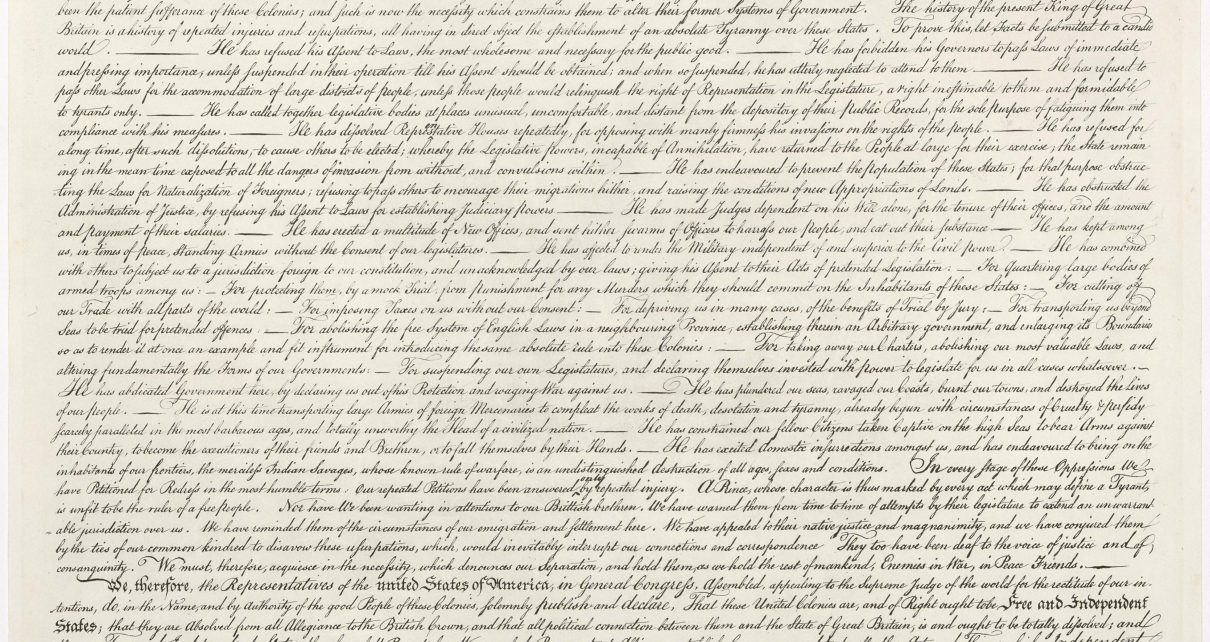 been the patient sufferance of these Colonies; and such is now the necessity which constrains them to alter their former Systems of Government. The history of the present King of Great
Britain is a history of repeated injuries and usurpations, all having in direct object the establishment of an absolute Tyranny over these States. To prove this, let Facts be submitted to a candid
world. ——— He has refused his Assent to Laws, the most wholesome and necessary for the public good. ——— He has forbidden his Governors to pass Laws of immediate
and pressing importance, unless suspended in their operation till his Assent should be obtained; and when so suspended, he has utterly neglected to attend to them. ——— He has refused to
pass other Laws for the accommodation of large districts of people, unless those people would relinquish the right of Representation in the Legislature, a right inestimable to them and formidable
to tyrants only. ——— He has called together legislative bodies at places unusual, uncomfortable, and distant from the depository of their public Records, for the sole purpose of fatiguing them into
compliance with his measures. ——— He has dissolved Representative Houses repeatedly, for opposing with manly firmness his invasions on the rights of the people. ——— He has refused for
a long time, after such dissolutions, to cause others to be elected; whereby the Legislative powers, incapable of Annihilation, have returned to the People at large for their exercise; the State remain
ing in the mean time exposed to all the dangers of invasion from without, and convulsions within. ——— He has endeavoured to prevent the population of these States; for that purpose obstruc-
ting the Laws for Naturalization of Foreigners; refusing to pass others to encourage their migrations hither, and raising the conditions of new Appropriations of Lands. ——— He has obstructed the
Administration of Justice, by refusing his Assent to Laws for establishing Judiciary powers. ——— He has made Judges dependent on his Will alone, for the tenure of their offices, and the amount
and payment of their salaries. ——— He has erected a multitude of New Offices, and sent hither swarms of Officers to harrass our people, and eat out their substance. ——— He has kept among
us, in times of peace, Standing Armies without the Consent of our legislatures. ——— He has affected to render the Military independent of and superior to the Civil power. ——— He has combined
with others to subject us to a jurisdiction foreign to our constitution, and unacknowledged by our laws; giving his Assent to their Acts of pretended Legislation: — For Quartering large bodies of
armed troops among us: — For protecting them, by a mock Trial, from punishment for any Murders which they should commit on the Inhabitants of these States: — For cutting off
our Trade with all parts of the world: — For imposing Taxes on us without our Consent: — For depriving us in many cases, of the benefits of Trial by Jury: — For transporting us beyond
Seas to be tried for pretended offences: — For abolishing the free System of English Laws in a neighbouring Province, establishing therein an Arbitrary government, and enlarging its Boundaries
so as to render it at once an example and fit instrument for introducing the same absolute rule into these Colonies: — For taking away our Charters, abolishing our most valuable Laws, and
altering fundamentally the Forms of our Governments: — For suspending our own Legislatures, and declaring themselves invested with power to legislate for us in all cases whatsoever. —
He has abdicated Government here, by declaring us out of his Protection and waging War against us. — He has plundered our seas, ravaged our Coasts, burnt our towns, and destroyed the lives
of our people. — He is at this time transporting large Armies of foreign Mercenaries to compleat the works of death, desolation and tyranny, already begun with circumstances of Cruelty & perfidy
scarcely paralleled in the most barbarous ages, and totally unworthy the Head of a civilized nation. — He has constrained our fellow Citizens taken Captive on the high Seas to bear Arms against
their Country, to become the executioners of their friends and Brethren, or to fall themselves by their Hands. — He has excited domestic insurrections amongst us, and has endeavoured to bring on the
inhabitants of our frontiers, the merciless Indian Savages, whose known rule of warfare, is an undistinguished destruction of all ages, sexes and conditions. In every stage of these Oppressions We
have Petitioned for Redress in the most humble terms: Our repeated Petitions have been answered only by repeated injury. A Prince, whose character is thus marked by every act which may define a Tyrant,
is unfit to be the ruler of a free people. Nor have We been wanting in attentions to our Brittish brethren. We have warned them from time to time of attempts by their legislature to extend an unwarrant
able jurisdiction over us. We have reminded them of the circumstances of our emigration and settlement here. We have appealed to their native justice and magnanimity, and we have conjured them
by the ties of our common kindred to disavow these usurpations, which, would inevitably interrupt our connections and correspondence. They too have been deaf to the voice of justice and of
consanguinity. We must, therefore, acquiesce in the necessity, which denounces our Separation, and hold them, as we hold the rest of mankind, Enemies in War, in Peace Friends. —
We, therefore, the Representatives of the united States of America, in General Congress, Assembled, appealing to the Supreme Judge of the world for the rectitude of our in-
tentions, do, in the Name, and by Authority of the good People of these Colonies, solemnly publish and declare, That these United Colonies are, and of Right ought to be Free and Independent
States; that they are Absolved from all Allegiance to the British Crown, and that all political connection between them and the State of Great Britain, is and ought to be totally dissolved; and